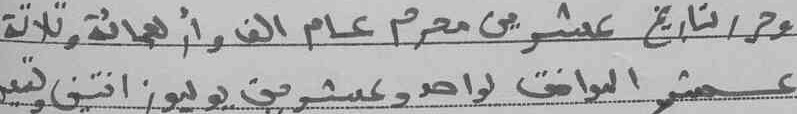 وحرر بتاريخ عشرين محرم عام الف وأربعمائة وثلاثة
عشر الموافق لواحد وعشرين يوليوز اثنين وتسعين